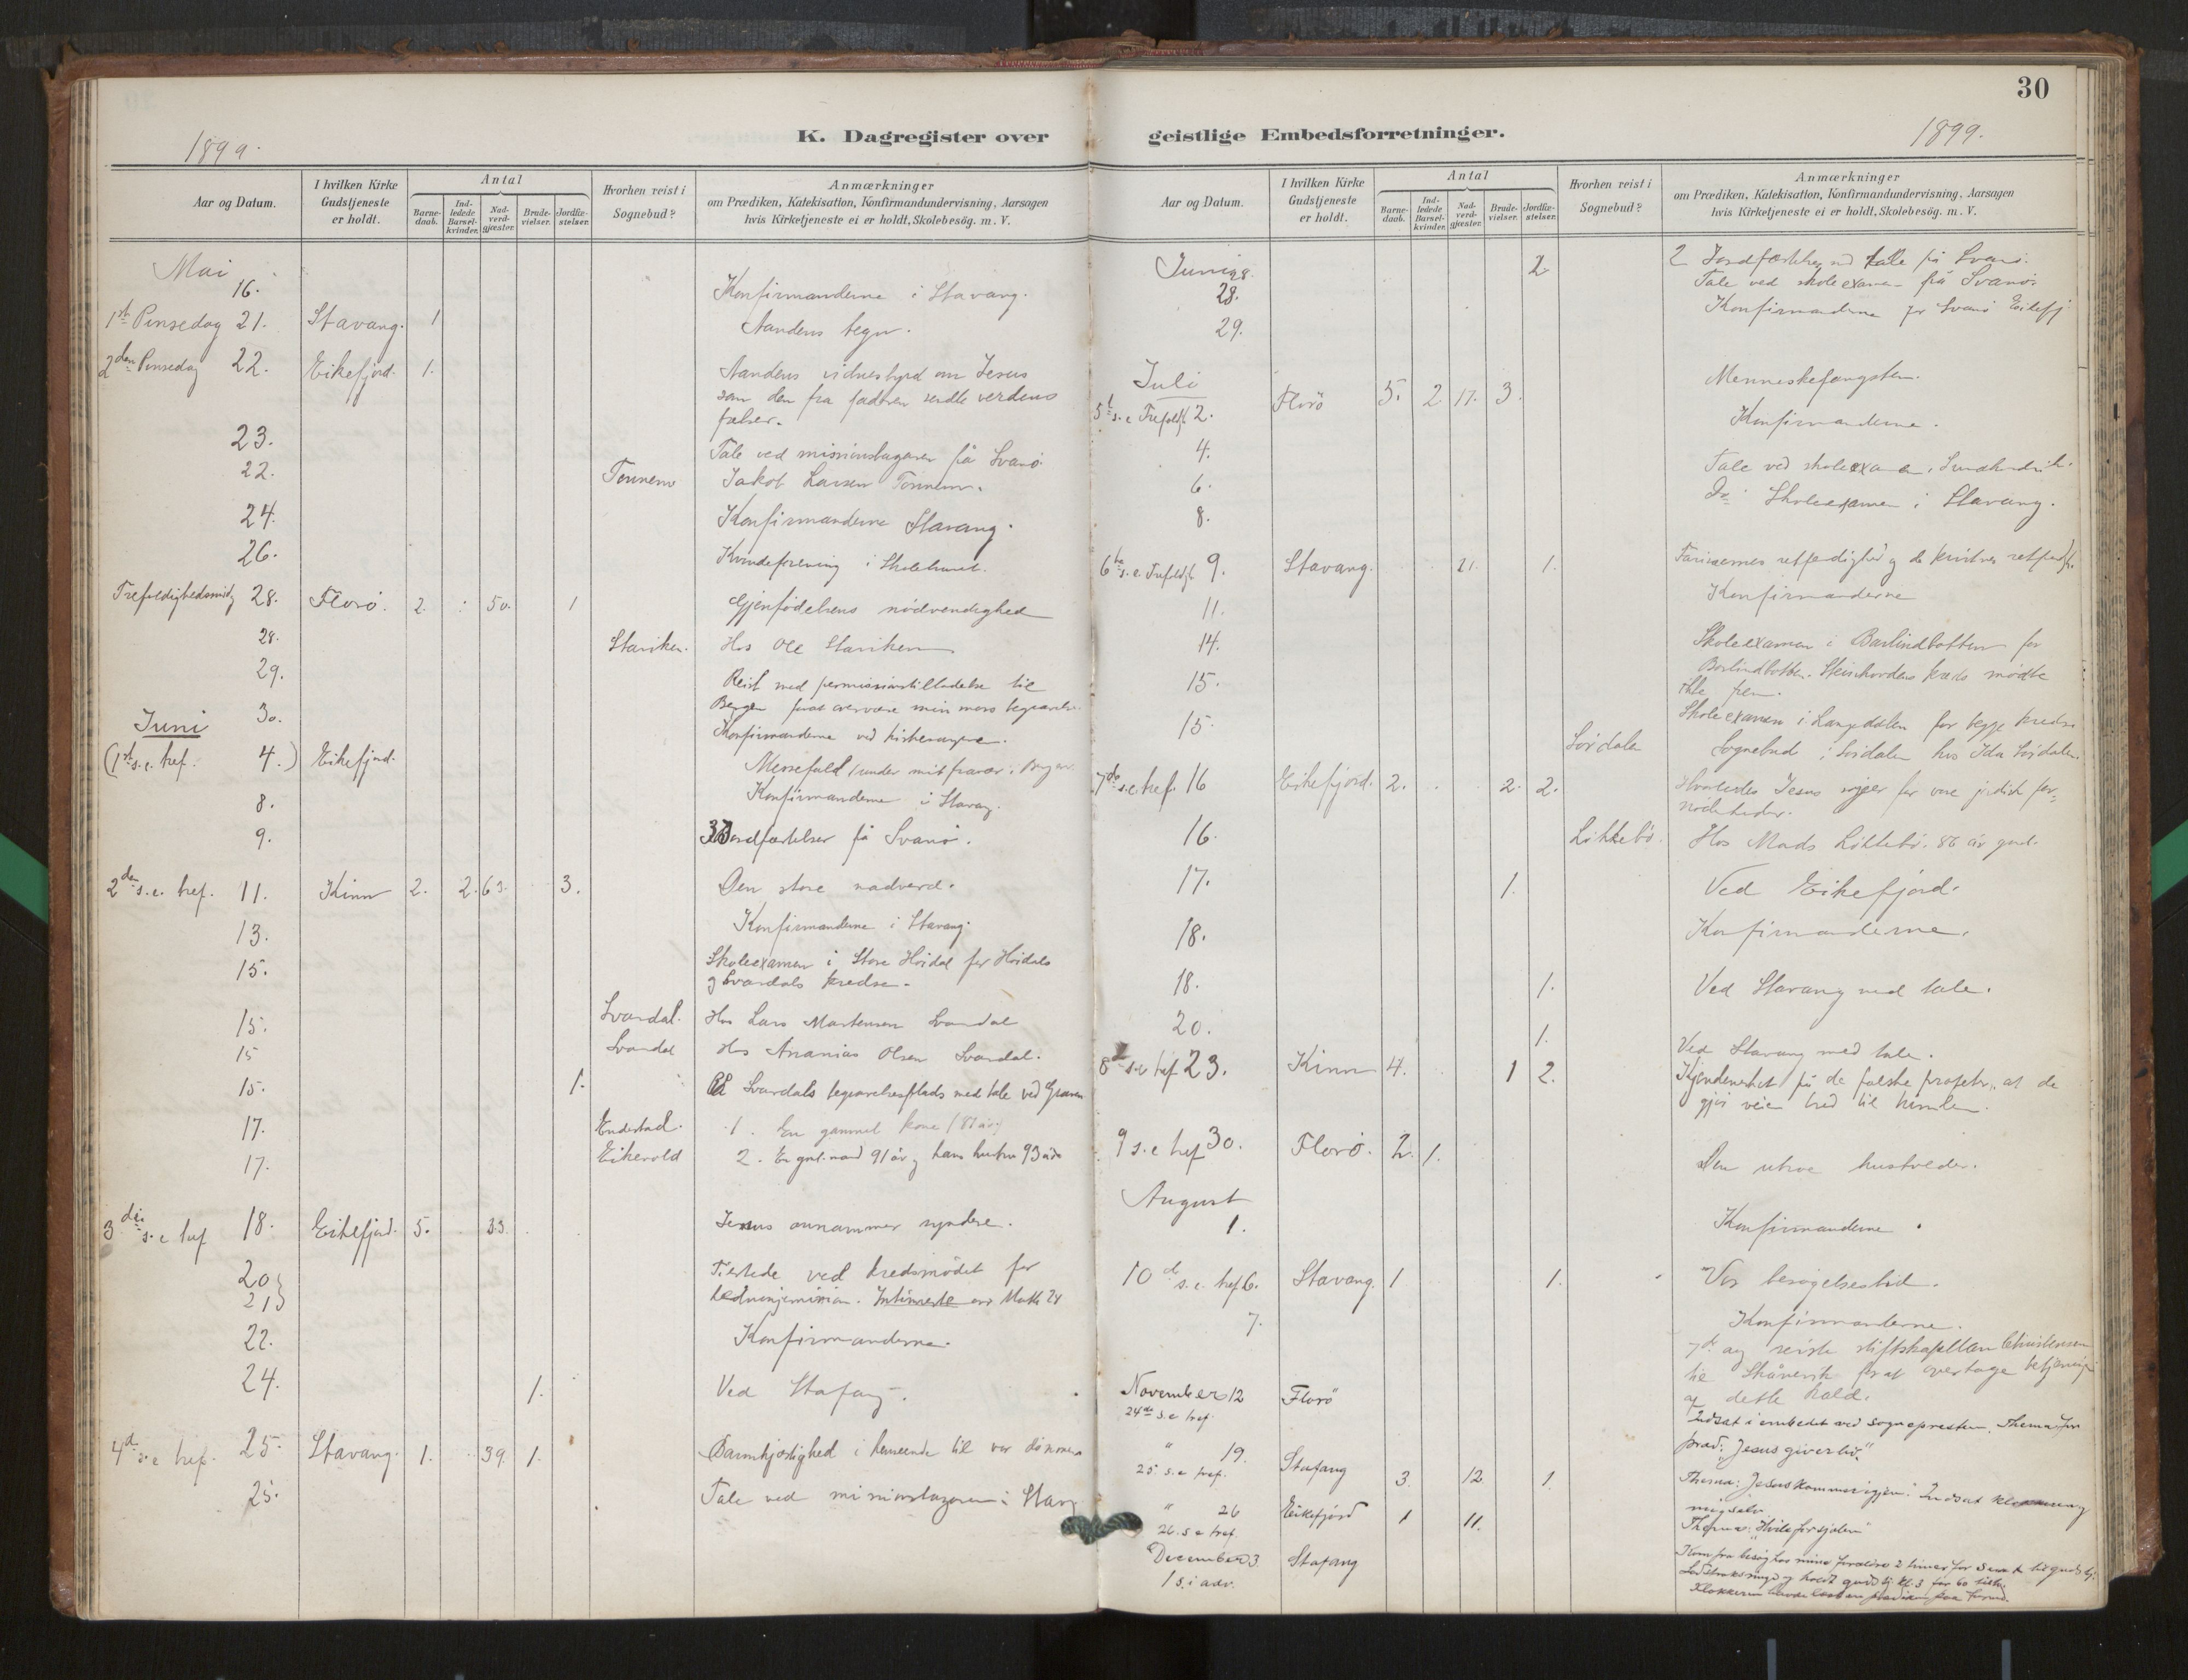 30
K. Dagregister over
geistlige Embedsforretninger.
1899.
Aar og Datum.
I hvilken Kirke
Gudstjeneste
er holdt.
Antal
Barne-
daab.
Ind-
ledede
Barsel-
kvinder.
Nad-
verd-
gjæster.
Brude-
vielser.
Jordfæ-
stelser.
Hvorhen reist i
Sognebud?
Anmærkninger
om Prædiken, Katekisation, Konfirmandundervisning, Aarsagen
hvis Kirketjeneste ei er holdt, Skolebesög. m. V.
Mai
16. Konfirmanderne i Stavang.
1st Pinsedag 21. Stavang. 1 Aandens tegn.
2den Pinsedag 22. Eikefjord. 1. Aandens vidnesbyrd om Jesus
som den fra faderen sendte verdens
frelser.
23. Tale ved missionsbazaren på Svanö.
22. Jakob Larsen
24. Konfirmanderne Stavang.
26. Kvindeforening i Skolehuset.
28. Florö. 2. 50. 1 Gjenfödelsens nödvendighed
28. Stariken. Hos Ole Stariken
29. Reist med permissionstilladelse til
Bergen for at overvære min mors begravelse.
30. Konfirmanderne ved
Juni
(1st s. e. tref. 4.) Eikefjord. Messefald (under mit fravær i Bergen
8. Konfirmanderne i Stavang.
9. Jordfæstelser på Svanö.
2den s. e. tref. 11. Kinn 2. 2. 63. 3. Den store nadverd.
13. Konfirmanderne i Stavang.
15. Skoleexamen i Store Höidal for Höidals
og Svardals kredse.
15. Svardal. Hos Lars Martensen Svardal
15 Svardal Hos Ananias Olsen Svardal.
15. 1. På Svardals begravelsesplads med tale ved Graven
17. Endestad. 1. En gammel kone
17. Eikevold 2. En gml. mand 91 år og hans hustru 93 år
3die s. e. tref 18. Eikefjord. 5. 33. Jesus annammer syndere.
20
21 Tilstede ved kredsmödet for
Math 24
22. Konfirmanderne.
24. 1. Ved Stafang.
4de s. e. tref. 25. Stavang. 1. 39. 1. Barmhjertighed i henseende til vor
25. Tale ved missionsbazaren i Stavang
1899.
Aar og Datum.
I hvilken Kirke
Gudstjeneste
er holdt.
Antal
Barne-
daab.
Ind-
ledede
Barsel-
kvinder.
Nad-
verd-
gjæster.
Brude-
vielser.
Jordfæ-
stelser.
Hvorhen reist i
Sognebud?
Anmærkninger
om Prædiken, Katekisation, Konfirmandundervisning, Aarsagen
hvis Kirketjeneste ei er holdt, Skolebesög. m. V.
Juni 28. 2 2 Jordfæstelser med tale på Svanö.
28. Tale ved skoleexamen på Svanö.
29. Konfirmanderne for Svanö Eikefj
Juli
5t s. e. Trefoldgh 2. Florö 5. 2 17. 3. Menneskefangsten.
4. Konfirmanderne.
6. Tale ved skoleexamen i
8. Do Skoleexamen i Stavang.
6te s. e. Trefoldgh 9. Stavang. 21. 1. Farisæernes retfærdighed og de kristnes retfærdgh.
11. Konfirmanderne
14. Skoleexamen i Barlindbotten for
15. Barlindbotten. kreds mödte
ikke frem.
15. Skoleexamen i Langedalen for begge kredse
Sördalen Sognebud i Sördalen hos Ida Sördalen.
7de s. e. tref. 16 Eikefjord. 2. 2. 2. Hvorledes Jesus sörger for vore jordiske for-
nödenheder.
16. Lökkebö. Hos Mads Lökkebö. 86 år gml.
17. 1. Ved Eikefjord.
18. Konfirmanderne.
18. 1. Ved Stavang med tale.
20. 1. Ved Stavang med tale.
8de s. e. tref 23. Kinn 4. 1 2. Kjendemerket på de falske profeter, at de
gjör veien bred til himlen.
9 s. e tref 30. Florö. 2. 1. Den utro husholder.
August
1. Konfirmanderne.
10de s. e. tref 6. Stavang. 1 1. Vor besögelsestid.
7. Konfirmanderne.
7de aug reiste stiftskapellan Christensen
til Skånevik for at overtage betjeningen
af dette kald.
November 12 Florö Indsat i embedet ved sognepresten. Thema for
24de s. e tref. præd: "Jesus giver liv."
" 19. Stafang 3. 12 1. Thema: Jesus kommer igjen. Indsat
25. s. e tref. mig selv.
" 26 Eikefjord 1 11. Thema: "Hvile for sjælen"
26. s e tref.
December 3 Stafang Kom fra besög hos mine forældre 2 timer for sent til gudstj.
1 s. i adv. og holdt gudstj kl. 3 for 60 tilh.
Klokkeren havde